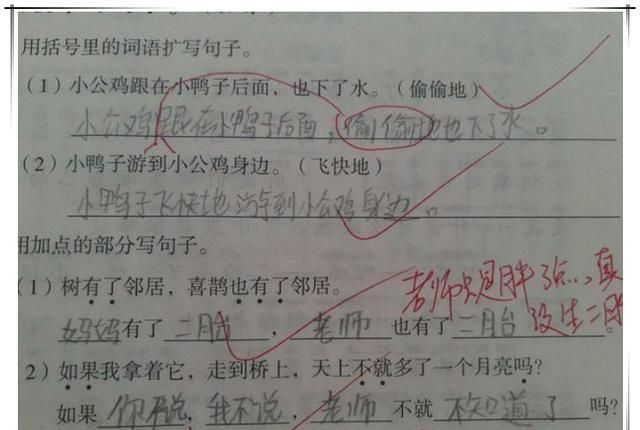 用括号里的词语扩写句子。
(1)小公鸡跟在小鸭子后面，也下了水。(偷偷地)
小公鸡跟在小鸭子后面，偷偷地也下了水。
(2)小鸭子游到小公鸡身边。(飞快地)
小鸭子飞快地游到小公鸡身边。
用加点的部分写句子。
(1)树有了邻居，喜鹊也有了邻居。
老师只是胖了点…真
妈妈有了二月台，老师也有了二月台。
没生二胎
2)如果我拿着它，走到桥上，天上不就多了一个月亮吗?
如果你不说，我不说，老师不就不知道了吗?